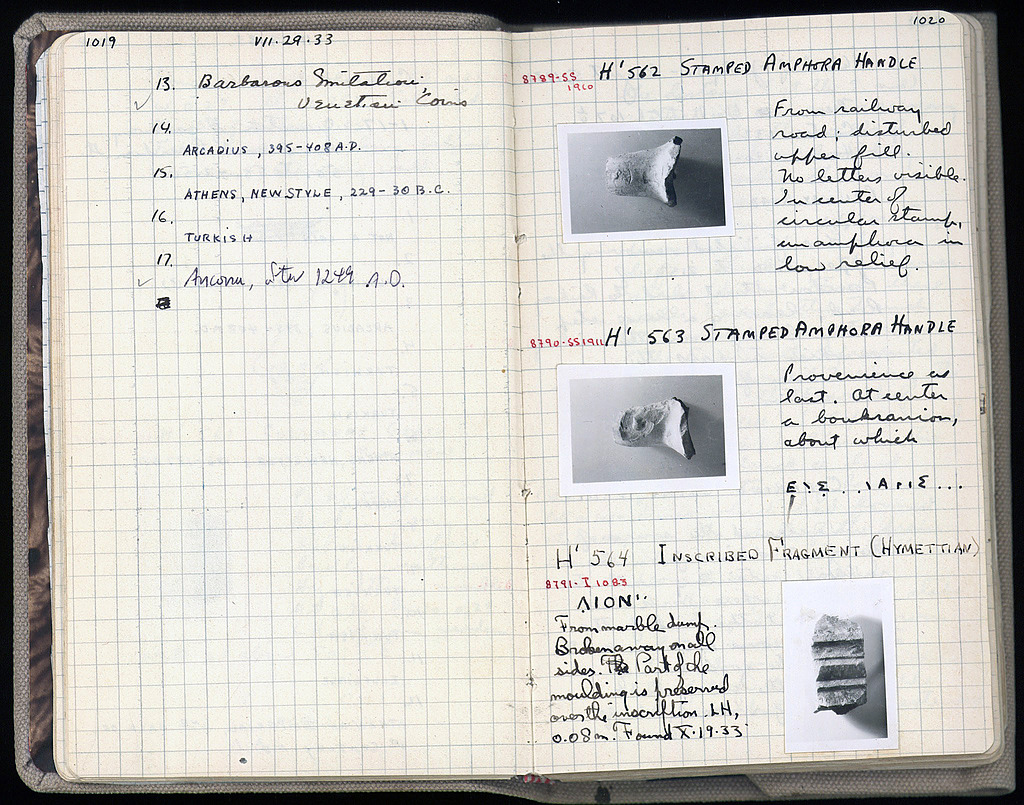 1019
VII·29·33
13. Barbarous Imitation,
Venetian Coins
14.
ARCADIUS, 395-408 A.D.
15.
ATHENS, NEW STYLE, 229-30 B.C.
16.
TURKISH
17.
Ancona, after 1249 A.D.
1020
8789-SS
1910
H' 562 STAMPED AMPHORA HANDLE
From railway
road; disturbed
upper fill.
No letters visible.
In center of
circular stamp,
an amphora in
low relief.
8790-SS1911
H' 563 STAMPED AMPHORA HANDLE
Provenience as
last. At center
a boukranion,
about which
H' 564 INSCRIBED FRAGMENT (HYMETTIAN)
8791-I 1083
ΛΙΟΝ
From marble dump.
Broken away on all
sides. Part of the
moulding is preserved
over the inscription. LH,
0.08m. Found X·19·33